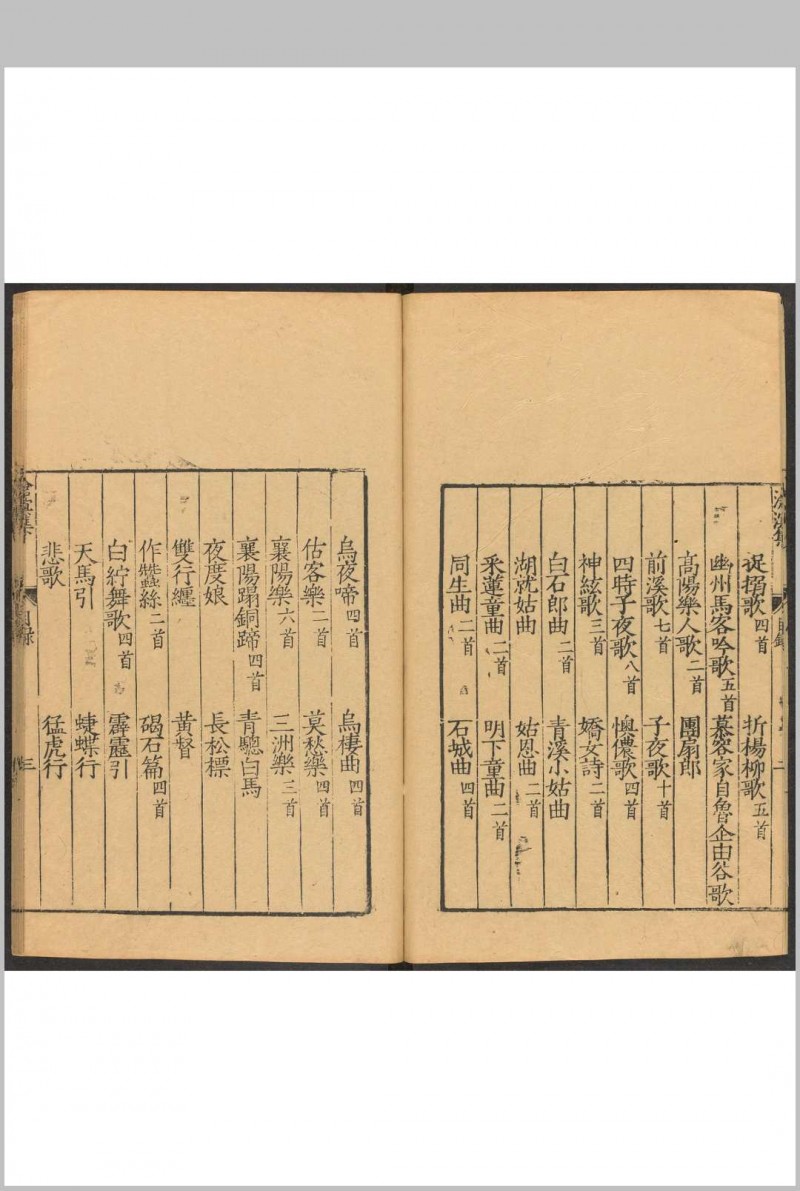 捉搦歌四首 折楊柳歌五首
幽州馬客吟歌五首 慕容家自魯企由谷歌
高陽樂人歌二首 團扇郎
前溪歌七首 子夜歌十首
四時子夜歌八首 懊儂歌四首
神絃歌三首 嬌女詩二首
白石郎曲二首 青溪小姑曲
湖就姑曲二首 姑恩曲二首
釆蓮童曲二首 明下童曲二首
同生曲二首 石城曲四首
烏夜啼四首 烏棲曲四首
估客樂二首 莫愁樂四首
襄陽樂六首 三洲樂三首
襄陽蹋銅蹄四首 青驄白馬
夜度娘 長松標
雙行纏 黃督
作蠶絲二首 碣石篇四首
白紵舞歌四首 霹靂引
天馬引 蜨蝶行
悲歌 猛虎行
目錄 三